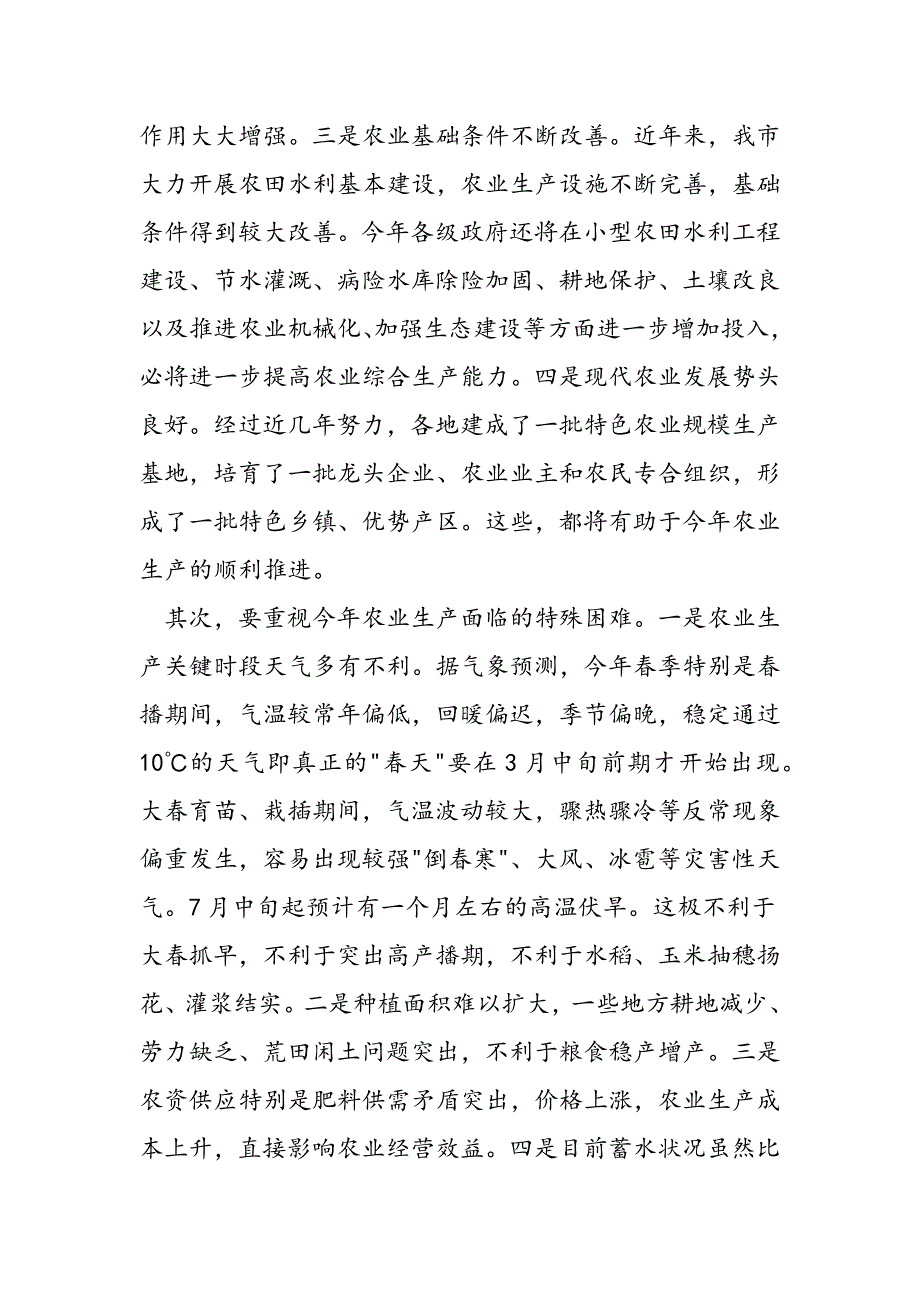 作用大大增强。三是农业基础条件不断改善。近年来，我市
大力开展农田水利基本建设，农业生产设施不断完善，基础
条件得到较大改善。今年各级政府还将在小型农田水利工程
建设、节水灌溉、病险水库除险加固、耕地保护、土壤改良
以及推进农业机械化、加强生态建设等方面进一步增加投入，
必将进一步提高农业综合生产能力。四是现代农业发展势头
良好。经过近几年努力，各地建成了一批特色农业规模生产
基地，培育了一批龙头企业、农业业主和农民专合组织，形
成了一批特色乡镇、优势产区。这些，都将有助于今年农业
生产的顺利推进。
其次，要重视今年农业生产面临的特殊困难。一是农业生
产关键时段天气多有不利。据气象预测，今年春季特别是春
播期间，气温较常年偏低，回暖偏迟，季节偏晚，稳定通过
10℃的天气即真正的"春天"要在3月中旬前期才开始出现。
大春育苗、栽插期间，气温波动较大，骤热骤冷等反常现象
偏重发生，容易出现较强"倒春寒"、大风、冰雹等灾害性天
气。7月中旬起预计有一个月左右的高温伏旱。这极不利于
大春抓早，不利于突出高产播期，不利于水稻、玉米抽穗扬
花、灌浆结实。二是种植面积难以扩大，一些地方耕地减少、
劳力缺乏、荒田闲土问题突出，不利于粮食稳产增产。三是
农资供应特别是肥料供需矛盾突出，价格上涨，农业生产成
本上升，直接影响农业经营效益。四是目前蓄水状况虽然比